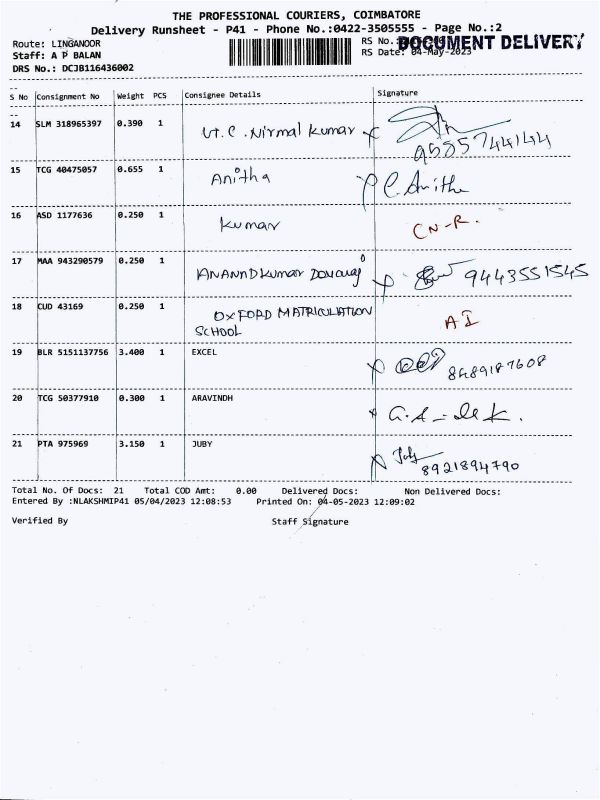 THE PROFESSIONAL COURIERS, COIMBATORE
Delivery Runsheet - P41 - Phone No.:0422-3505555 - Page No.:2
Route: LINGANOOR
RS No.:
DOCUMENT DELIVERY
Staff: A P BALAN
RS Date: 04-May-2023
DRS No.: DCJB116436002
S No Consignment No Weight PCS Consignee Details Signature
14 SLM 318965397 0.390 1 Nirmal Kumar
15 TCG 40475057 0.655 1 Anitha C. Anitha
16 ASD 1177636 0.250 1 Kumar CN-R.
17 MAA 943290579 0.250 1 ANANNDKumar 9443551545
18 CUD 43169 0.250 1 OXFORD MATRICULATION AI
SCHOOL
19 BLR 5151137756 3.400 1 EXCEL 8489187608
20 TCG 50377910 0.300 1 ARAVINDH
21 PTA 975969 3.150 1 JUBY Juby
8921894790
Total No. Of Docs: 21 Total COD Amt: 0.00 Delivered Docs: Non Delivered Docs:
Entered By :NLAKSHMIP41 05/04/2023 12:08:53 Printed On: 04-05-2023 12:09:02
Verified By Staff Signature